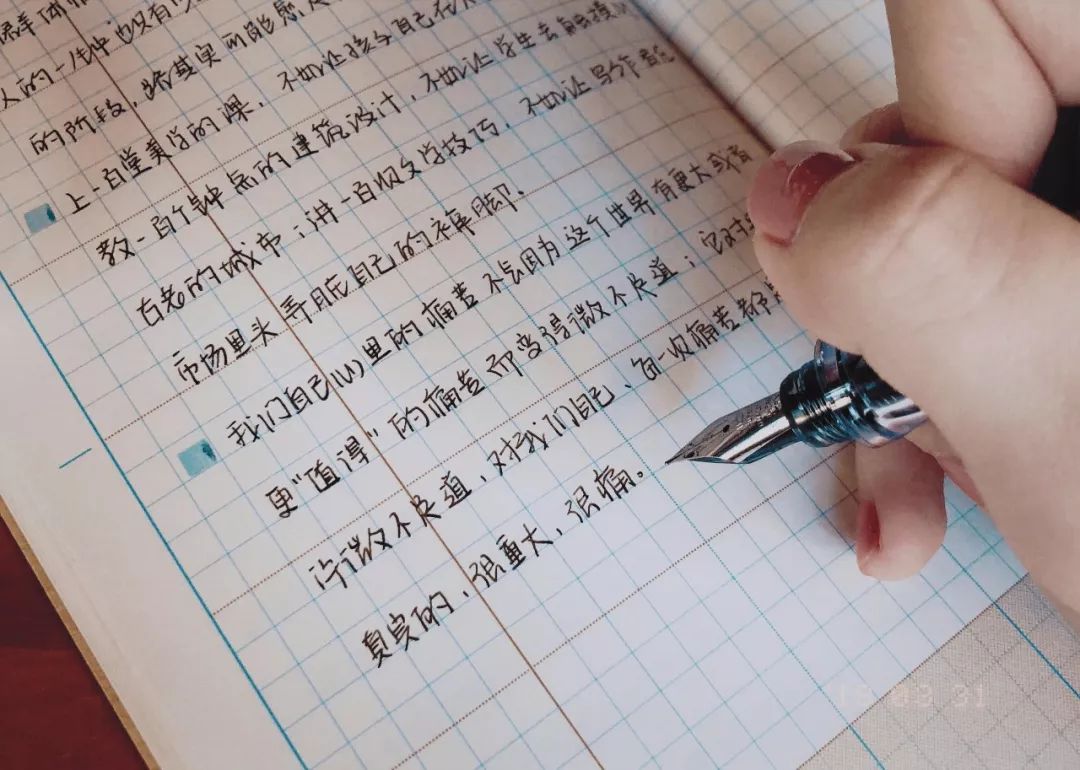 群体
人的一生中也没有
的阶段,其实可能愿
上一百堂美学的课,不如让孩子自己在大
教一百个钟点的建筑设计,不如让学生去触摸几
古老的城市;讲一百次文学技巧,不如让写作者在
市场里头弄脏自己的裤脚.
我们自己心里的痛苦不会因为这个世界有更大或者
更“值得”的痛苦而变得微不足道;它对
许微不足道,对我们自己、每一次痛苦都
真实的,很重大,很痛。